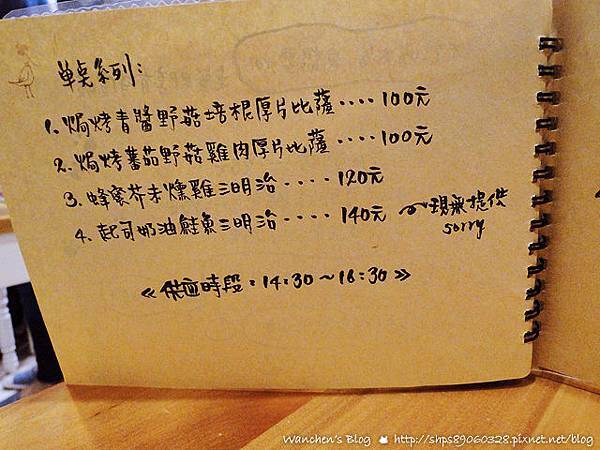 單點系列:
1. 焗烤青醬野菇培根厚片比薩‥‥100元
2. 焗烤蕃茄野菇雞肉厚片比薩‥‥100元
3. 蜂蜜芥末燻雞三明治‥‥120元
4. 起司奶油鮭魚三明治‥‥140元
現無提供
sorry
《供應時段:14:30～18:30》
Wanchen's Blog http://shps89060328.pixnet.net/blog